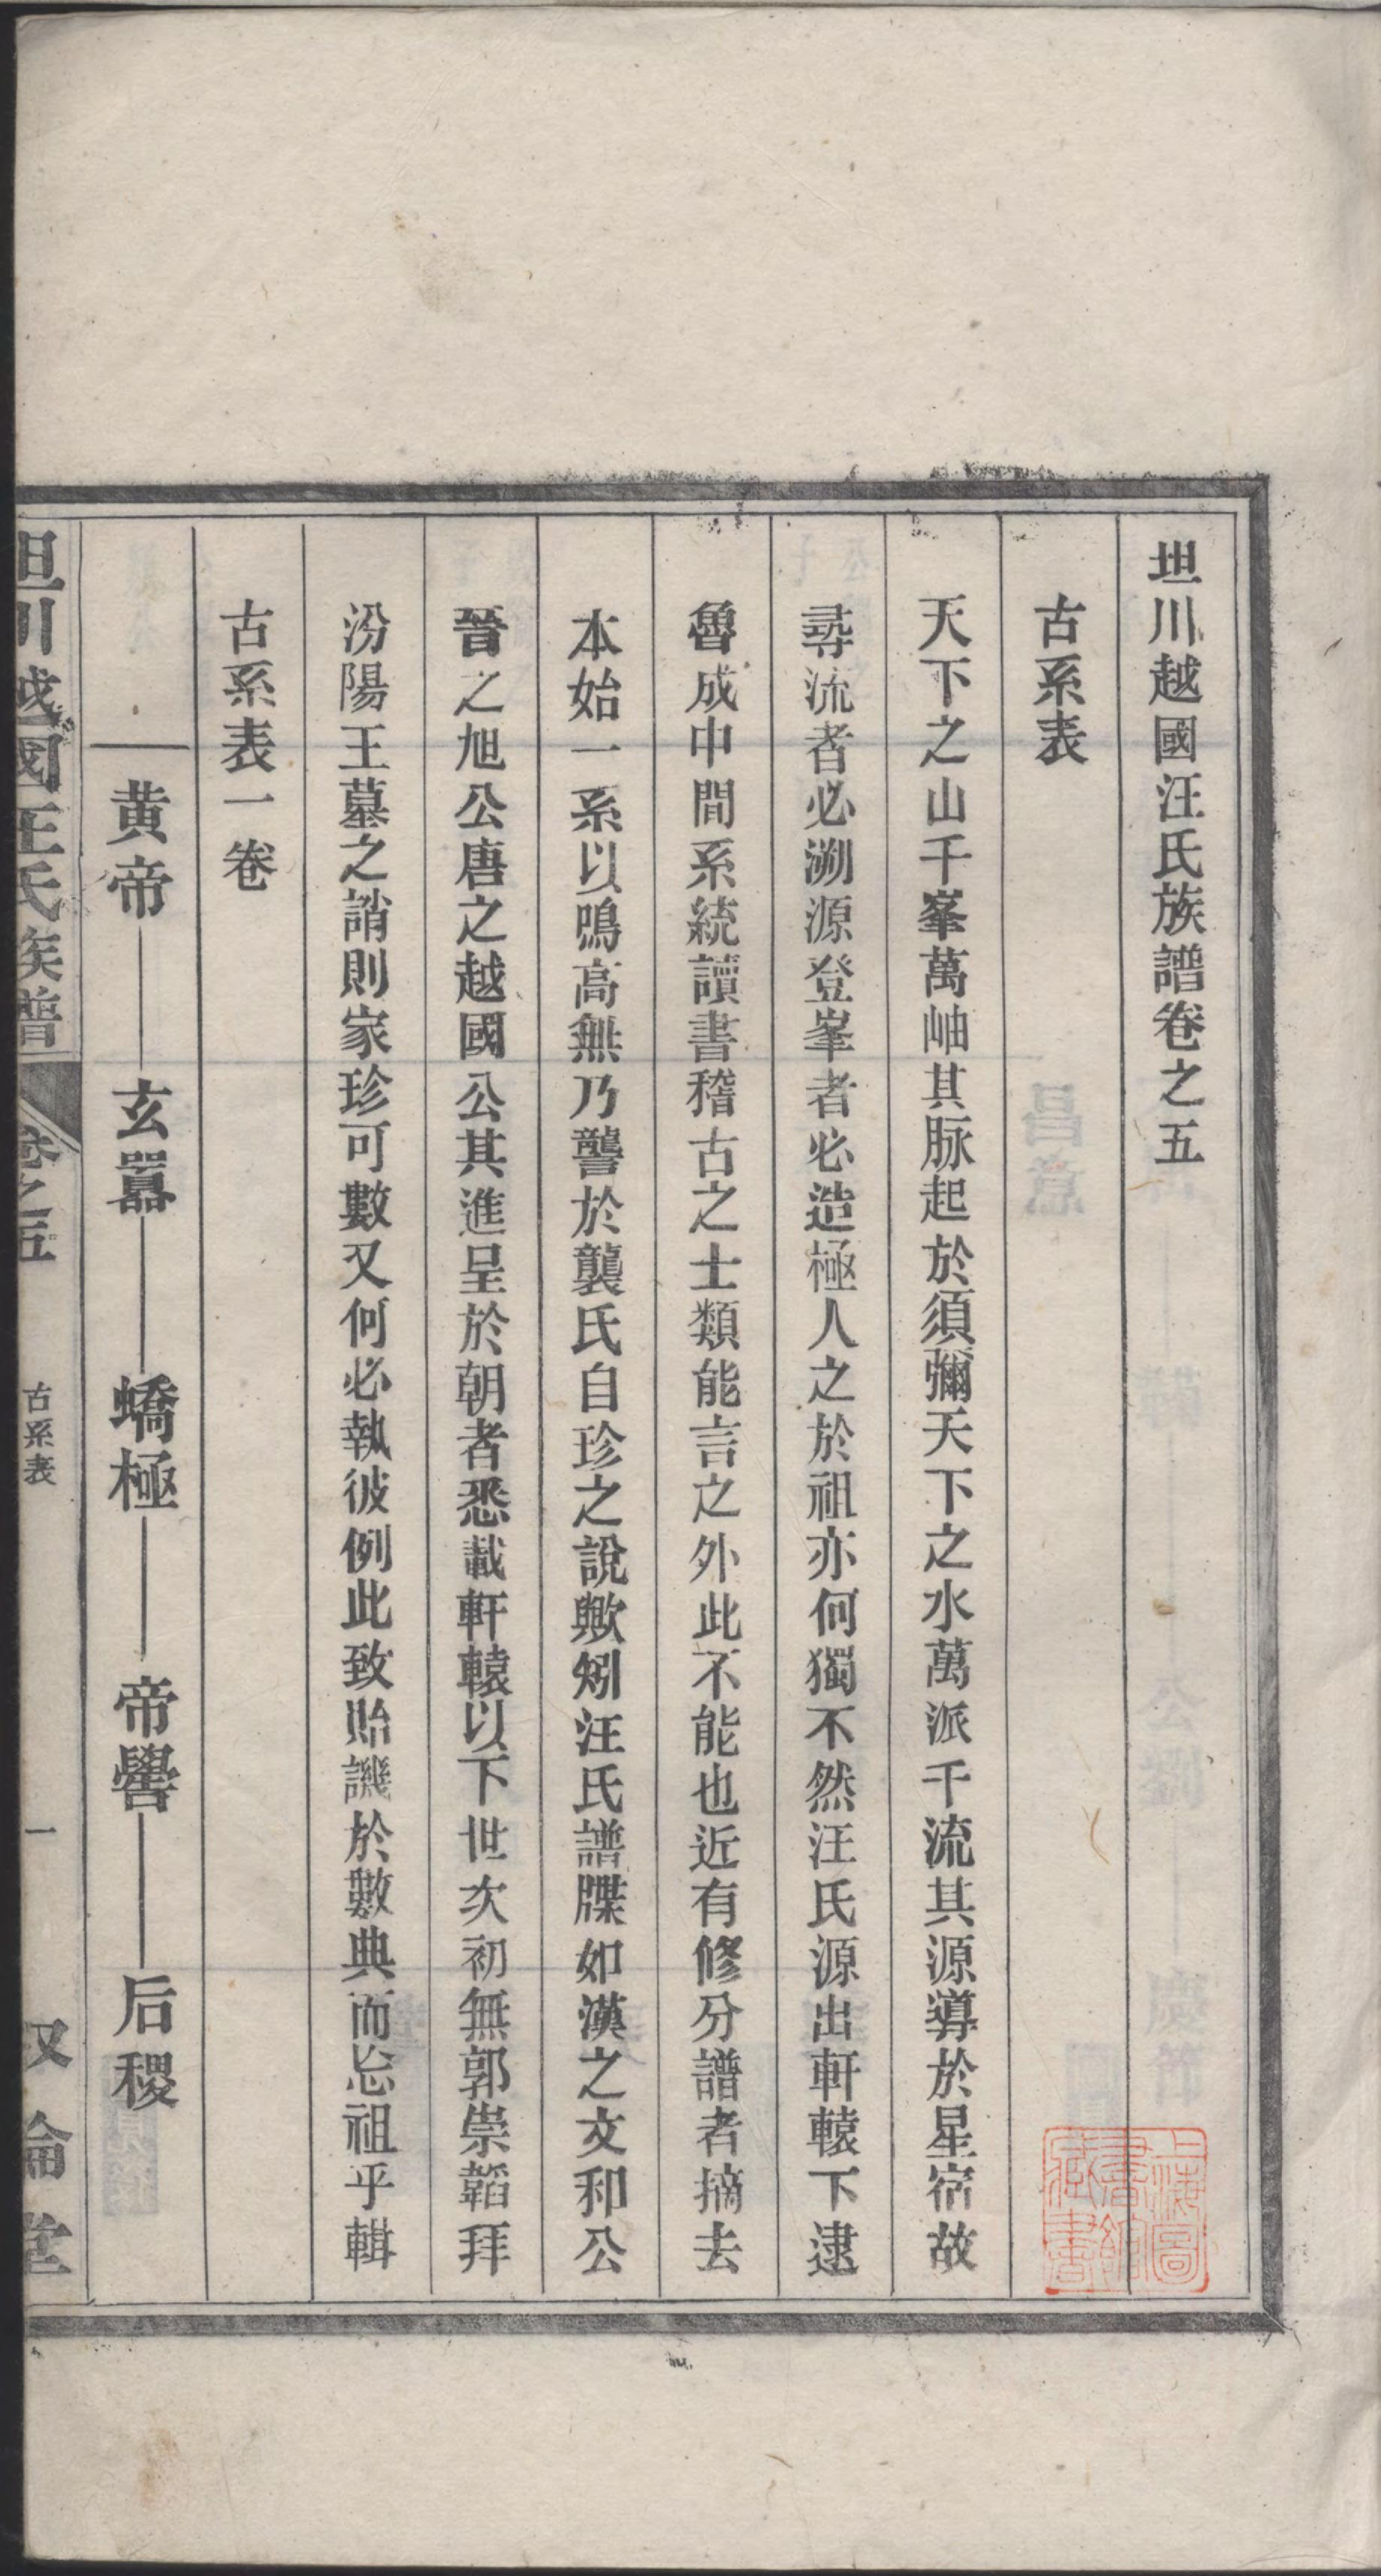 坦川越國汪氏族譜卷之五
古系表
天下之山千峯萬岫其脉起於須彌天下之水萬派千流其源導於星宿故
尋流者必溯源登峯者必造極人之於祖亦何獨不然汪氏源出軒轅下逮
魯成中間系統讀書稽古之士類能言之外此不能也近有修分譜者摘去
本始一系以鳴高無乃讏於龔氏自珍之說歟矧汪氏譜牒如漢之文和公
晉之旭公唐之越國公其進呈於朝者悉載軒轅以下世次初無郭崇韜拜
汾陽王墓之誚則家珍可數又何必執彼例此致貽譏於數典而忘祖乎輯
古系表一卷
黄帝 玄囂 蟜極 帝嚳 后稷
坦川越國汪氏族譜 卷之五 古系表 一 叙倫堂
上海圖書館藏書